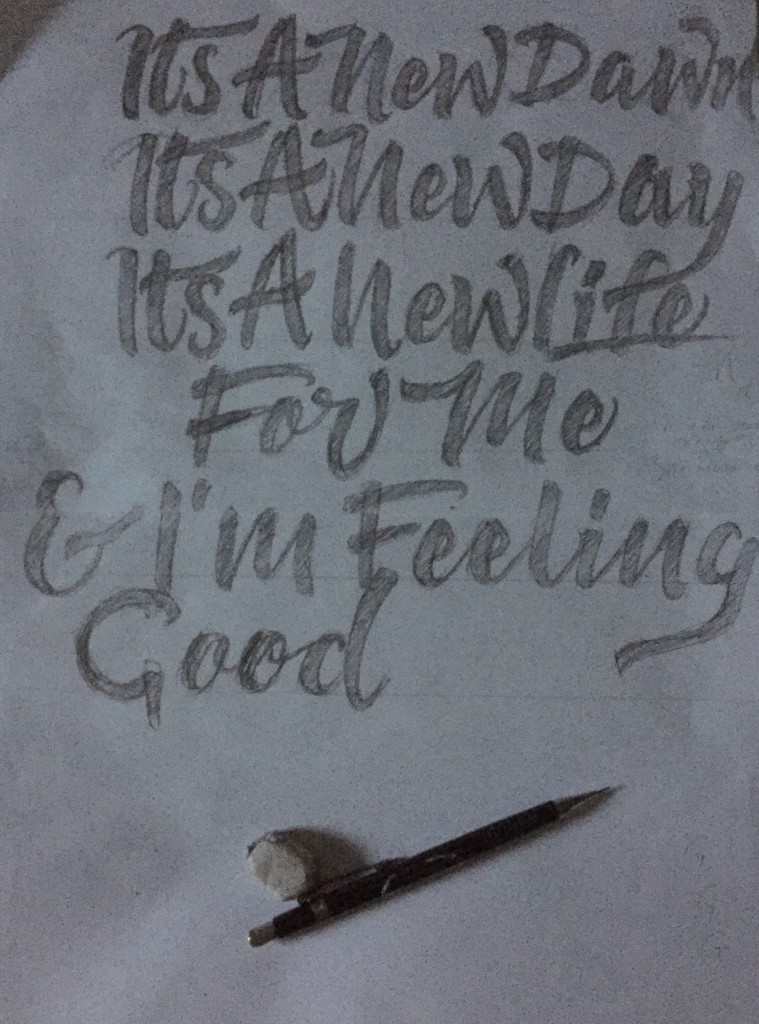 Its A New Dawn
Its A New Day
Its A New Life
For Me
& I'm Feeling
Good